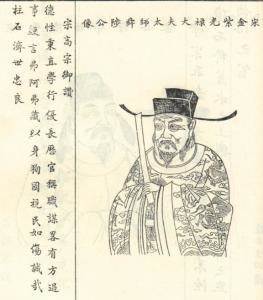 宋金紫光祿大夫太師舜陸公像
宋高宗御讚
德性秉直學行優長歷官稱職謀畧有方遇
事建言弗阿弗藏以身狥國視民如傷誠哉
柱石濟世忠良